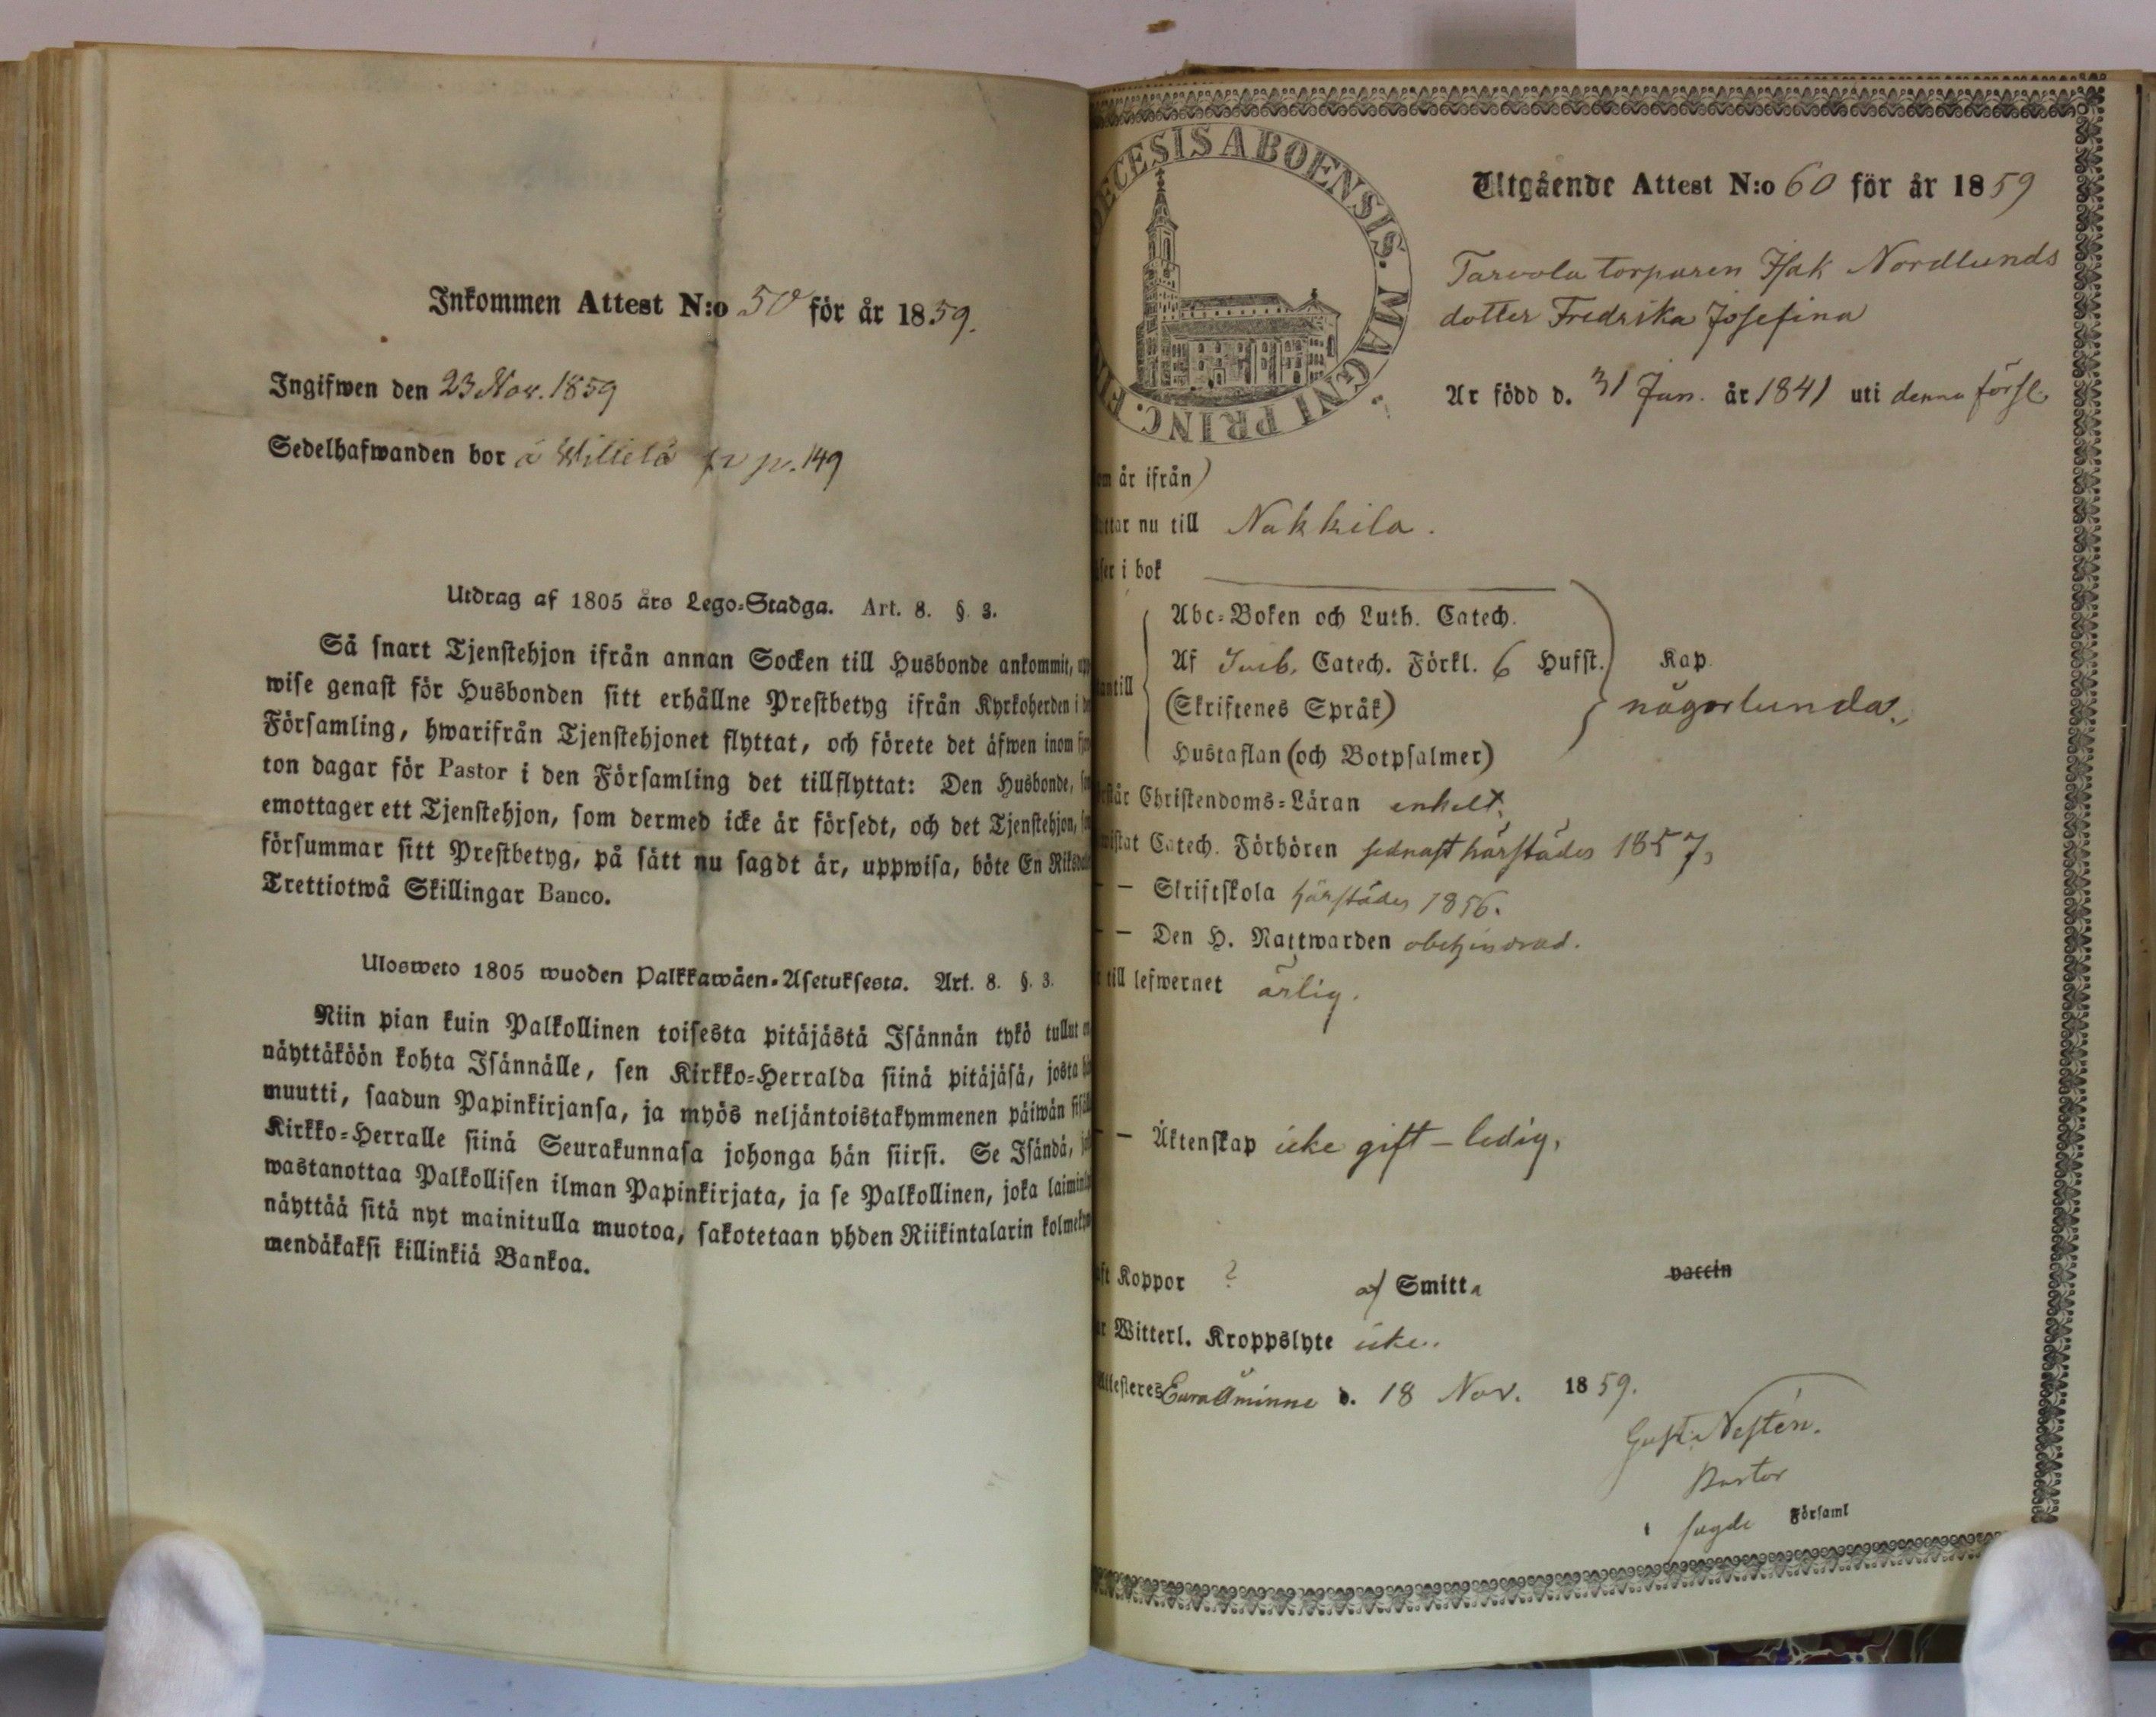 Inkommen Attest N:o 50 för år 1859.
Ingifwen den 23 Nov. 1859
Sedelhafwanden bor å Willilä p. 149
Utdrag af 1805 års Lego-Stadga. Art. 8. §. 3.
Så snart Tjenstehjon ifrån annan Socken till Husbonde ankommit,
wise genast för Husbonden sitt erhållne Prestbetyg ifrån Kyrkoherden i
Församling, hwarifrån Tjenstehjonet flyttat, och förete det äfwen inom
ton dagar för Pastor i den Församling det tillflyttat: Den Husbonde,
emottager ett Tjenstehjon, som dermed icke är försedt, och det Tjenstehjon,
försummar sitt Prestbetyg, på sätt nu sagdt är, uppwisa, böte En
Trettiotwå Skillingar Banco.
Ulosweto 1805 wuoden Palkkawäen-Asetuksesta. Art. 8. §. 3.
Niin pian kuin Palkollinen toisesta pitäjästä Isännän tykö tullut
näyttäköön kohta Isännälle, sen Kirkko-Herralda siinä pitäjäsä, josta
muutti, saadun Papinkirjansa, ja myös neljäntoistakymmenen päiwän
Kirkko-Herralle siinä Seurakunnasa johonga hän siirsi. Se Isändä,
wastanottaa Palkollisen ilman Papinkirjata, ja se Palkollinen, joka
näyttää sitä nyt mainitulla muotoa, sakotetaan yhden Riikintalarin
mendäkaksi killinkiä Bankoa.
ECESIS ABOENSIS. MAGNI PRINC.
Utgående Attest N:o 60 för år 1859
Tarvola torparen Isak Nordlunds
dotter Fredrika Josefina
Är född d. 31 Jan. år 1841 uti denna förs.
är ifrån)
nu till Nakkila.
i bok
Abc-Boken och Luth. Catech.
Af Svib. Catech. Förkl. 6 Hufst. Kap.
(Skriftenes Språk)
någorlunda,
Hustaflan (och Botpsalmer)
Christendoms-Läran enkelt,
Catech. Förhören sednast härstädes 1857,
— Skriftskola härstädes 1856.
— Den H. Nattwarden obehindrad.
till lefwernet ärlig.
— Äktenskap icke gift - ledig,
Koppor ? af Smitta vaccin
Witterl. Kroppslyte icke.
Attesteres Eura Åminne d. 18 Nov. 1859.
Gust. Nestén.
Pastor
i sagde Församl